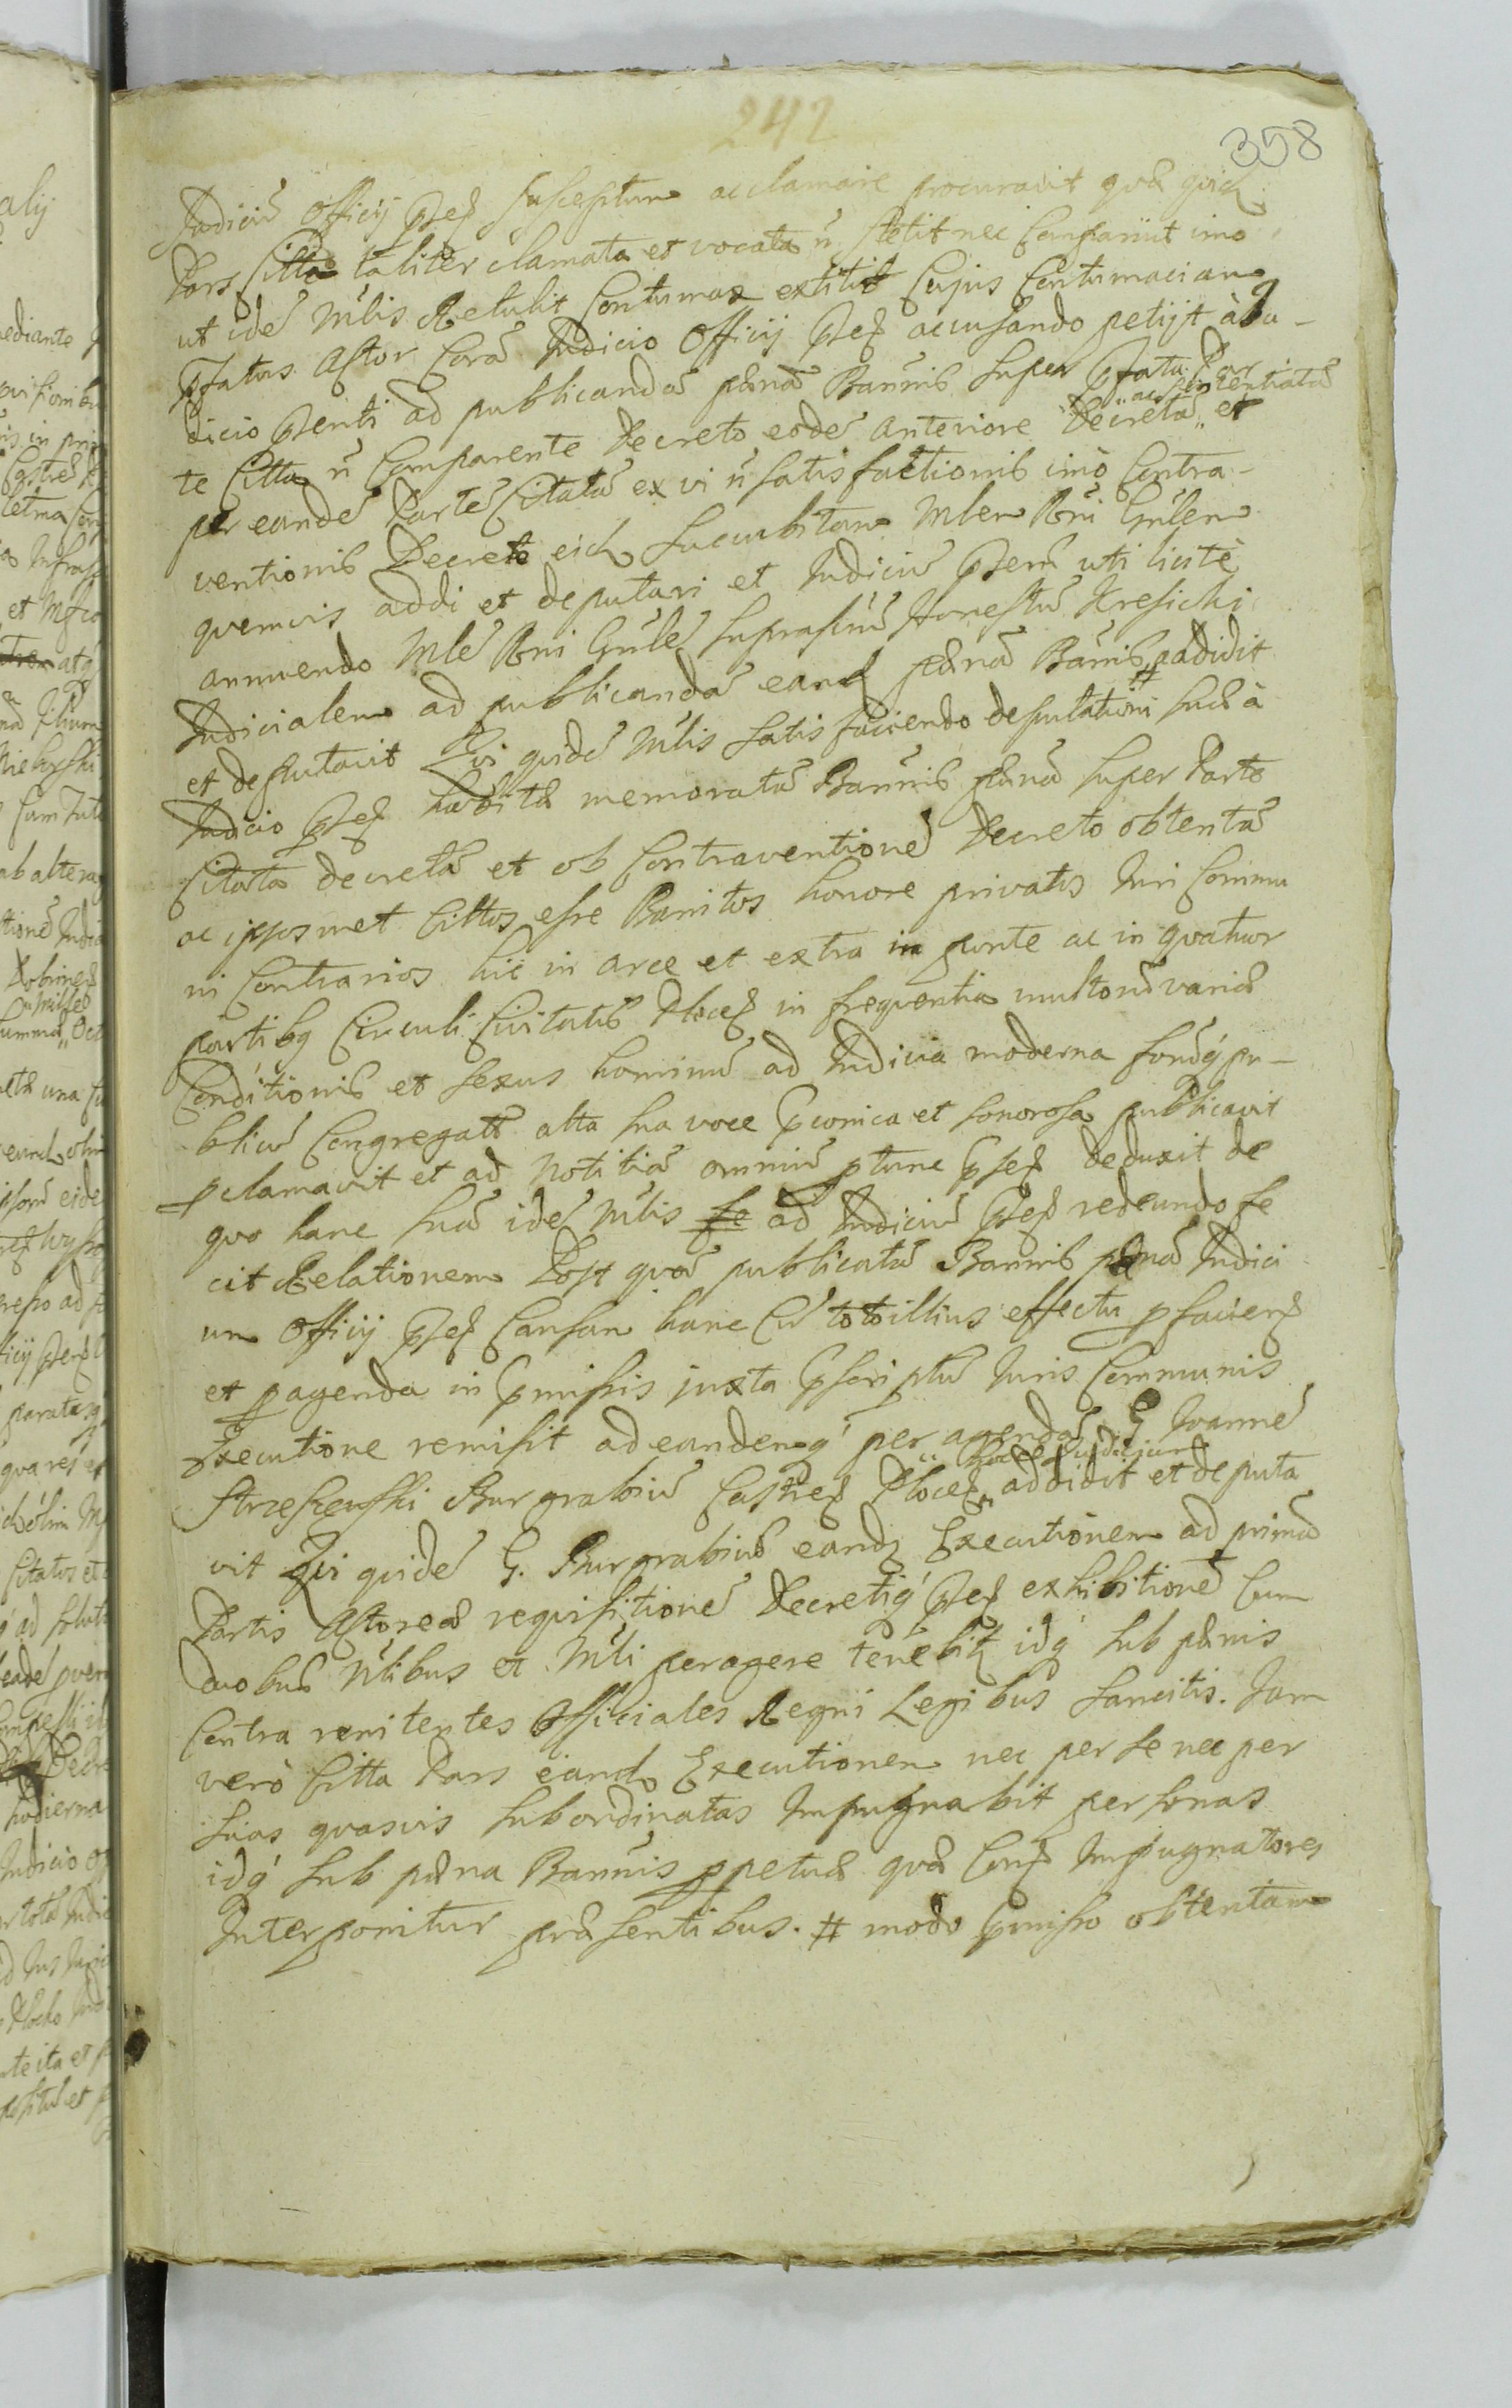 242
358
Judiciũ Officij pñs susceptum acclamare procuravit quæ quid
Pars Citta taliter clamata et vocata ñ stetit nec Comparuit imo
ut idẽ Mlis Retulit Contumax extitit Cujus Contumaciam
pfatus Actor Corã Judicio Officij pñs accusando petijt à Ju-
dicio pñti ad publicandã pænã Bannis super pfata Par
te Citta ñ Comparente Decreto eodẽ anteriore Decretã " et
" ac sententiatã
per eandẽ Partẽ Citatã ex vi ñ satisfactionis imò Contra-
ventionis Decreto eid succubitam Mlem Rni Gnlem
quemvis addi et deputari et Judiciũ pñs uti licitè
annuendo Mlẽ Rni Gnlẽ suprascrũ Honestũ Kresicki
Judicialem ad publicandã eand pænã Bannis # addidit
et deputavit Qui quidẽ Mlis satisfaciendo deputationi suæ à
Judicio pñs habitæ memoratã Bannis pænã super Parte
Citata decretã et ob Contraventionẽ Decreto obtentã
ac ipsosmet Cittos esse Banitos honore privatos Juri Commu
ni Contrarios hic in arce et extra in ponte ac in quatuor
partibq Circuli Civitatis Plocen in frequentia multorũ variæ
Conditionis et sexus hominũ ad Judicia moderna forũq pu-
blicũ Congregatt alta sua voce pconica et sonorosa publicavit
pclamavit et ad notitiã omniũ ptunc pñs deduxit de
quo hanc suã idẽ Mlis se ad Judiciũ pñs redeundo fe
cit Relationem Post quã publicatã Bannis pænã Judici
um Officij pñs Causam hanc Cũ toto illius effectu pfaciend
et pagenda in pmissis juxta pscriptũ Juris Communis
Executione remisit ad eandemq peragendã G Joannẽ
Strzeszewski Burgrabiũ Castren Plocen " addidit et deputa
vit Qui quidẽ G. Burgrabius eand Executionem ad primã
Partis Actoreæ requisitionẽ Decretiq pñs exhibitionẽ Cum
duobus Nlibus et Mli peragere tenebit idq sub pænis
Contra renitentes Officiales Regni Legibus sancitis. Jam
verò Citta Pars eand Executionem nec per se nec per
suas quasvis subordinatas Impugnabit personas
idq sub pæna Bannis ppetuæ quæ Cont Impugnatores
Interponitur præsentibus. # modo pmisso obtentam